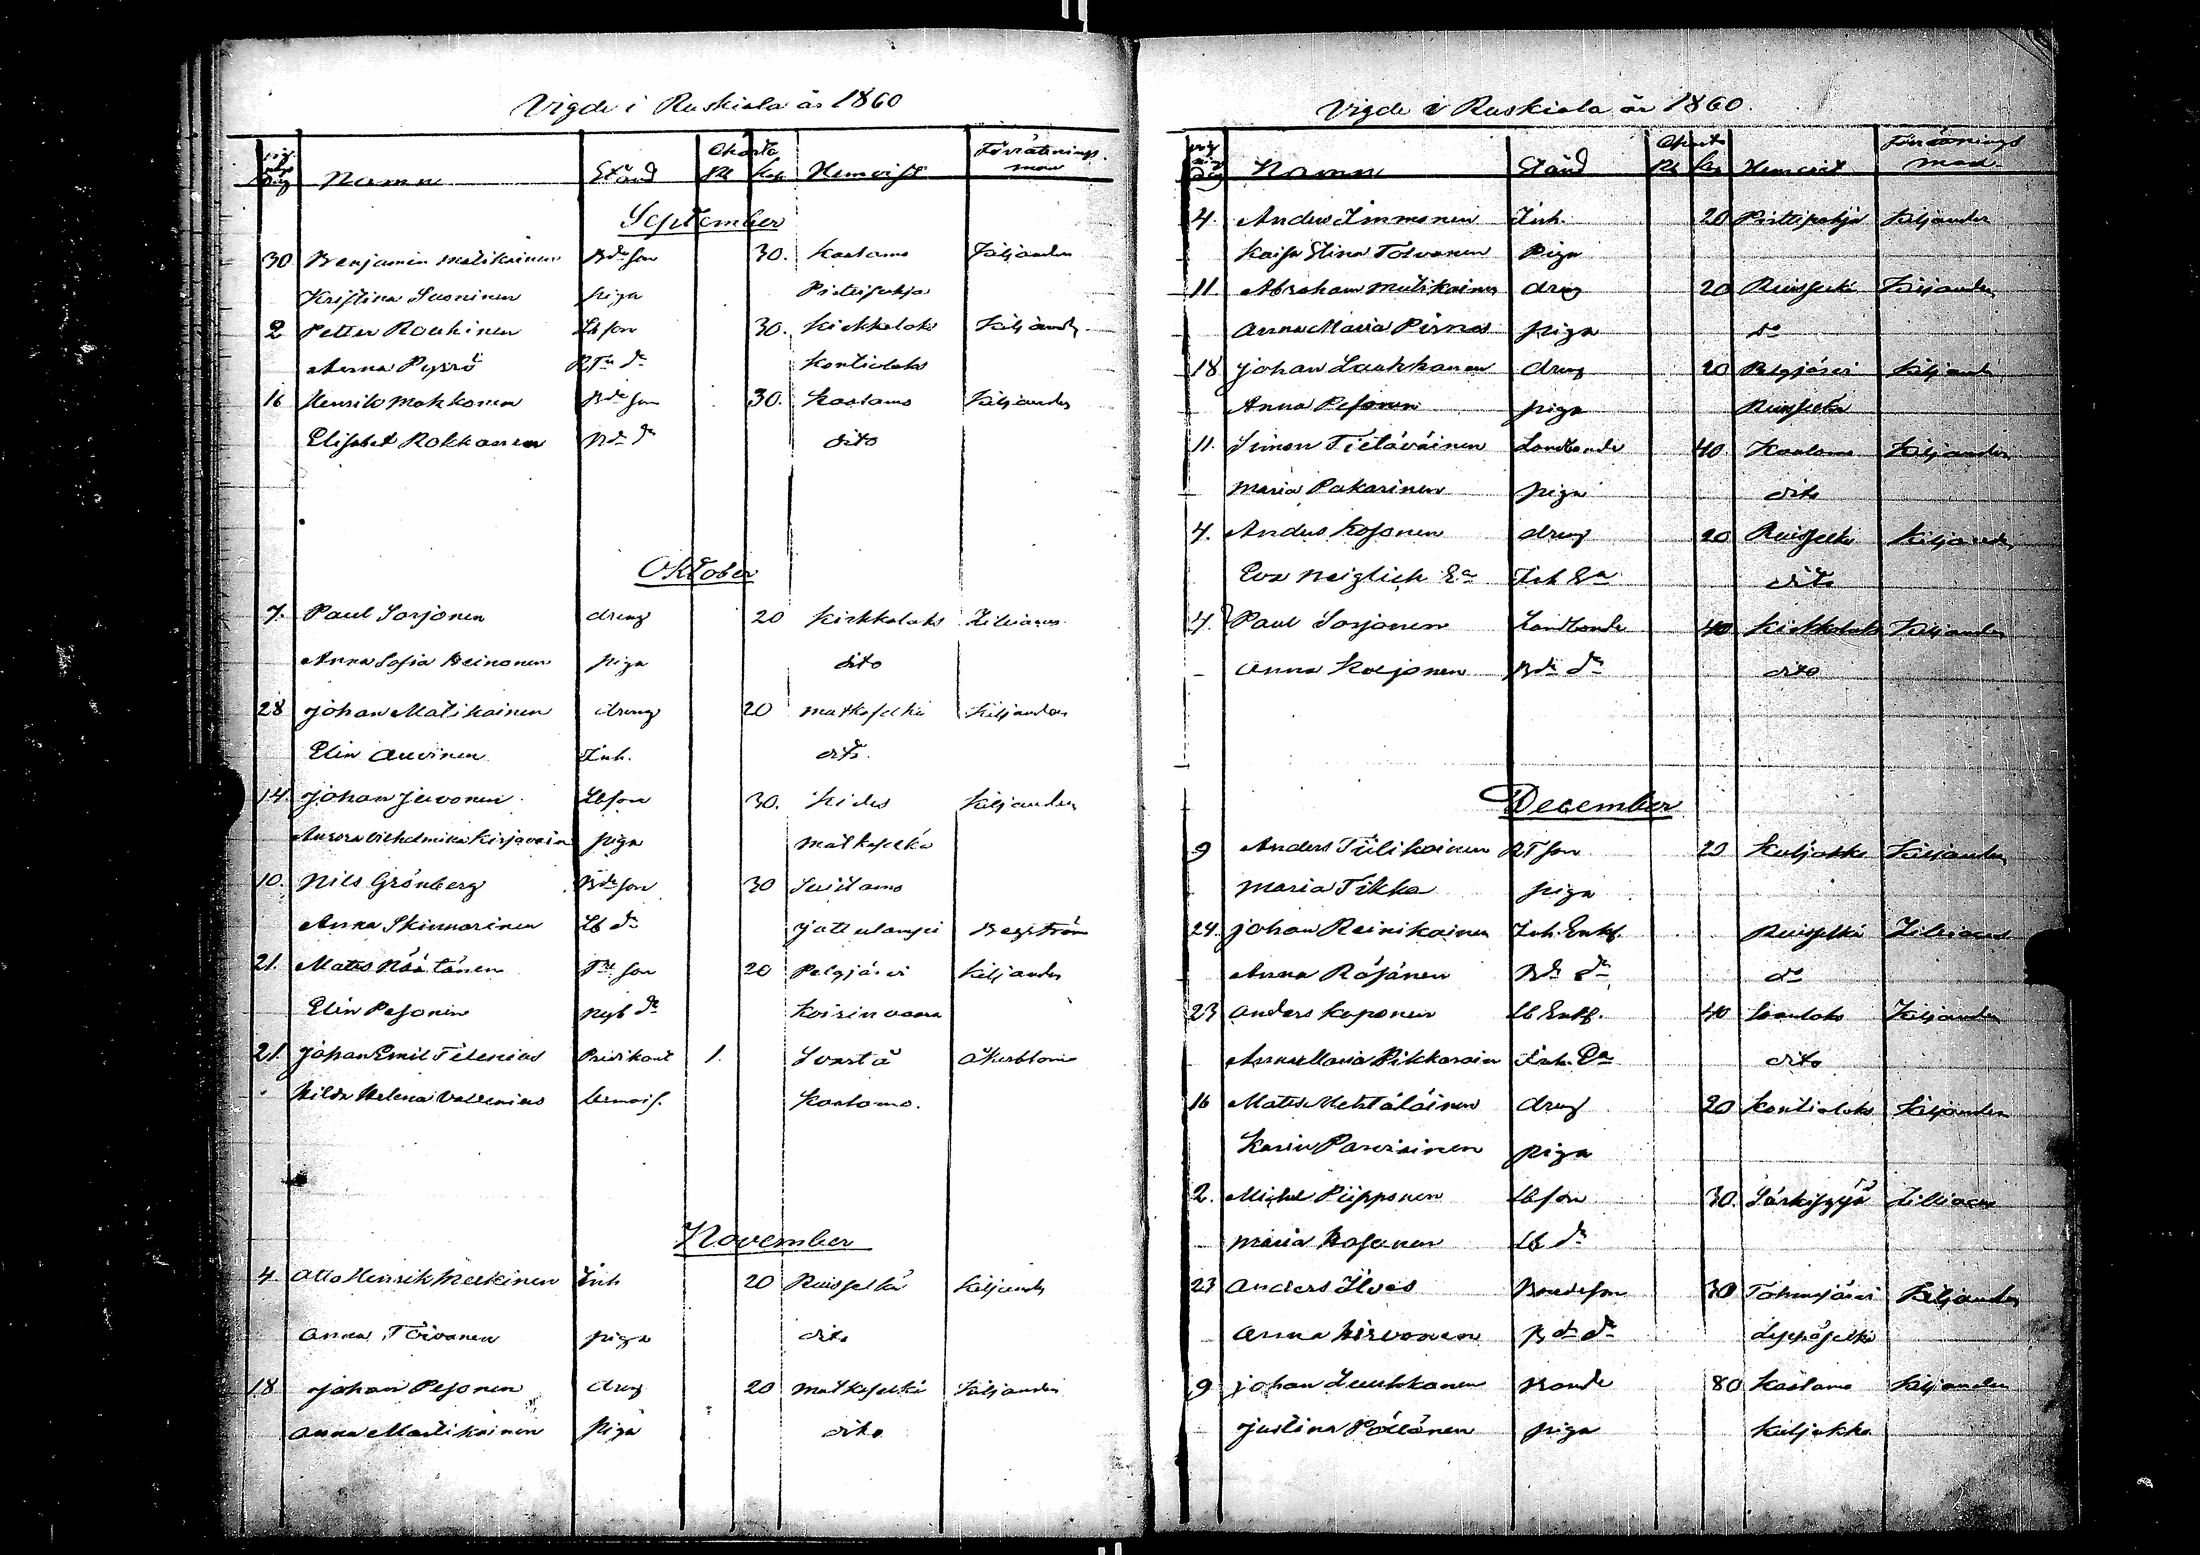 Vigde i Ruskiala år 1860
Namn Stånd Charta Rbl Kop Hemvist Förrättnings man
September
30 Benjamin Matikainen Bde son 30. Kaalamo Kiljander
Kristina Suoninen piga Pirttipohja
2 Petter Roukinen Lb son 30. Kirkkolaks Kiljander
Anna Pyrrö dr Kontiolaks
16 Henrik Mokkonen Bde son 30. Kaalamo Kiljander
Elisabet Rokkanen Bde dr dito
Oktober
7. Paul Sorjonen dreng 20 Kirkkolaks Liliacus
Anna Sofia Heinonen piga dito
28 Johan Matikainen dreng 20 Matkaselkä Kiljander
Elin Auvinen Inh. dito
14 Johan Juvonen Lb son 30. Kides Kiljander
Aurora Vilhelmina Kirjavain piga Matkaselkä
10. Nils Grönberg Bde son 30 Suistamo
Anna Skinnarinen Lb dr Jalkulampi Bergström
21. Mats Näätänen son 20 Pelgjärvi Kiljander
Elin Pesonen Nyb dr Koirinvaara
21. Johan Emil Telenius Predikant 1. Svartå Åkerblom
Hilda Helena Vallenius Demois. Kaalamo.
November
4. Otto Henrik Meskinen Inh 20 Ruisselkä Kiljander
Anna Toivanen piga dito
18 Johan Pesonen dreng 20 Matkaselkä Kiljander
Anna Martikainen piga dito
Vigde i Ruskiala år 1860.
Namn Stånd Charta Rb Kop Hemvist Förrättnings man
4. Anders Immonen Inh. 20 Pirttipohja Kiljander
Kaisa Elina Tolvanen Piga
11 Abraham Matikainen dreng 20 Ruisselkä Kiljander
Anna Maria Pirnes piga do
18 Johan Laukkanen dreng 20 Pelgjärvi Kiljander
Anna Pesonen piga Ruisselkä
11. Simon Tietäväinen Landbonde 40 Kaalamo Kiljander
Maria Pakarinen piga dito
4. Anders Kosonen dreng 20 Ruisselkä Kiljander
Eva Neiglich Ea Inh Ea dito
4. Paul Sorjonen Landbonde 40 Kirkkolaks Kiljander
Anna Korjonen Bde dr dito
December
9 Anders Tiilikainen RT son 20 Kuljakko Kiljander
Maria Tikka piga
24. Johan Reinikainen Inh. Enkl. Ruisselkä Liliacus
Anna Räsänen Bde dr do
23 Anders Koponen Lb Enkl. 40 Kiljander
Anna Maria Pikkarain Inh. Ea dito
16 Mats Mehtäläinen dreng 20 Kontiolaks Kiljander
Karin Parviainen piga
2. Michel Piipponen Lb son 30. Särkisyrjä Liliacus
Maria Kosonen Lb dr
23 Anders Ilves Bondeson 30 Tohmajärvi Kiljander
Anna Hirvonen Bde dr Leppäselkä
9 Johan Laukkanen Bonde 80 Kaalamo Kiljander
Justina Pöllänen piga Kuljakko